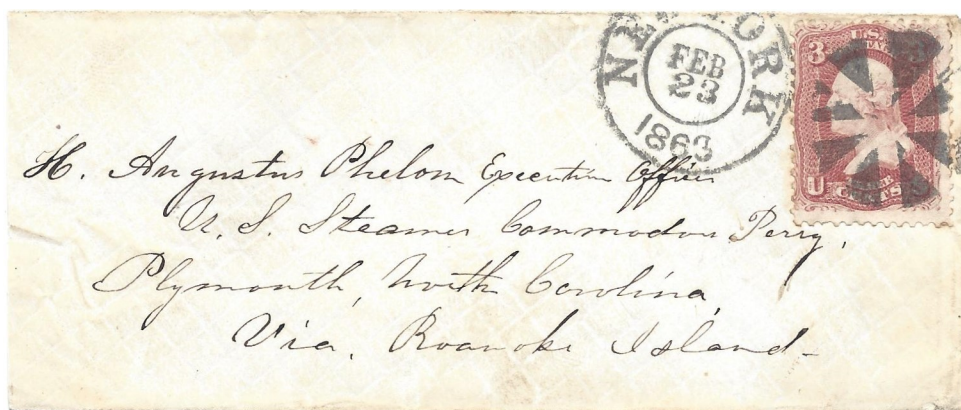 NEW YORK
FEB
23
1863
3
U
CENTS
H. Augustus Phelon Executive Officer
U. S. Steamer Commodore Perry,
Plymouth, North Carolina,
Via, Roanoke Island-